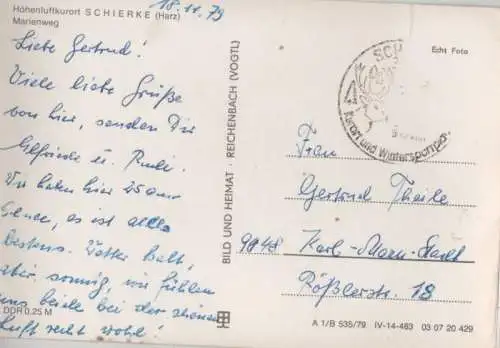 Höhenluftkurort SCHIERKE (Harz)
Marienweg
18.11.79
Liebe Gertrud!
Viele liebe Grüße
von hier, senden Dir
Elfriede u. Rudi.
Wir haben hier 25 cm
es ist alles
bestens. Wetter kalt,
aber sonnig, wir fühlen
uns beide bei der schönen
Luft recht wohl!
DDR 0,25 M
BILD UND HEIMAT · REICHENBACH (VOGTL)
Echt Foto
SCH
Kurort und Wintersportpl
Frau
Gertrud Theile
9048 Karl-Marx-Stadt
Rößlerstr. 18
A 1/B 535/79 IV-14-483 03 07 20 429